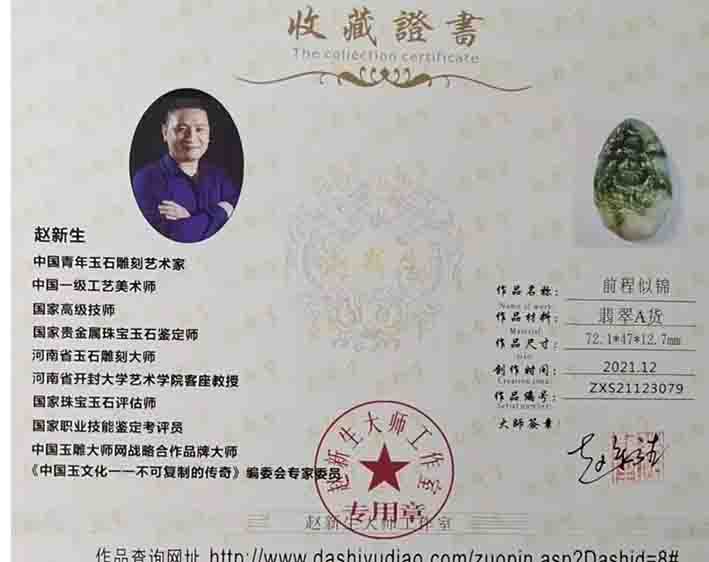 收藏證書
The collection certificate
赵新生
中国青年玉石雕刻艺术家
中国一级工艺美术师
国家高级技师
国家贵金属珠宝玉石鉴定师
河南省玉石雕刻大师
河南省开封大学艺术学院客座教授
国家珠宝玉石评估师
国家职业技能鉴定考评员
中国玉雕大师网战略合作品牌大师
《中国玉文化一一不可复制的传奇》编委会专家委员
作品名称: 前程似锦
Name of work:
作品材料: 翡翠A货
Material:
作品尺寸: 72.1*47*12.7mm
size:
创作时间: 2021.12
Creation time:
作品编号: ZXS21123079
Serial number:
大师签章:
赵新生
赵新生大师工作室
专用章
赵新生大师工作室
作品查询网址 http://www.dashiyudiao.com/zuopin.asp?Dashid=8#